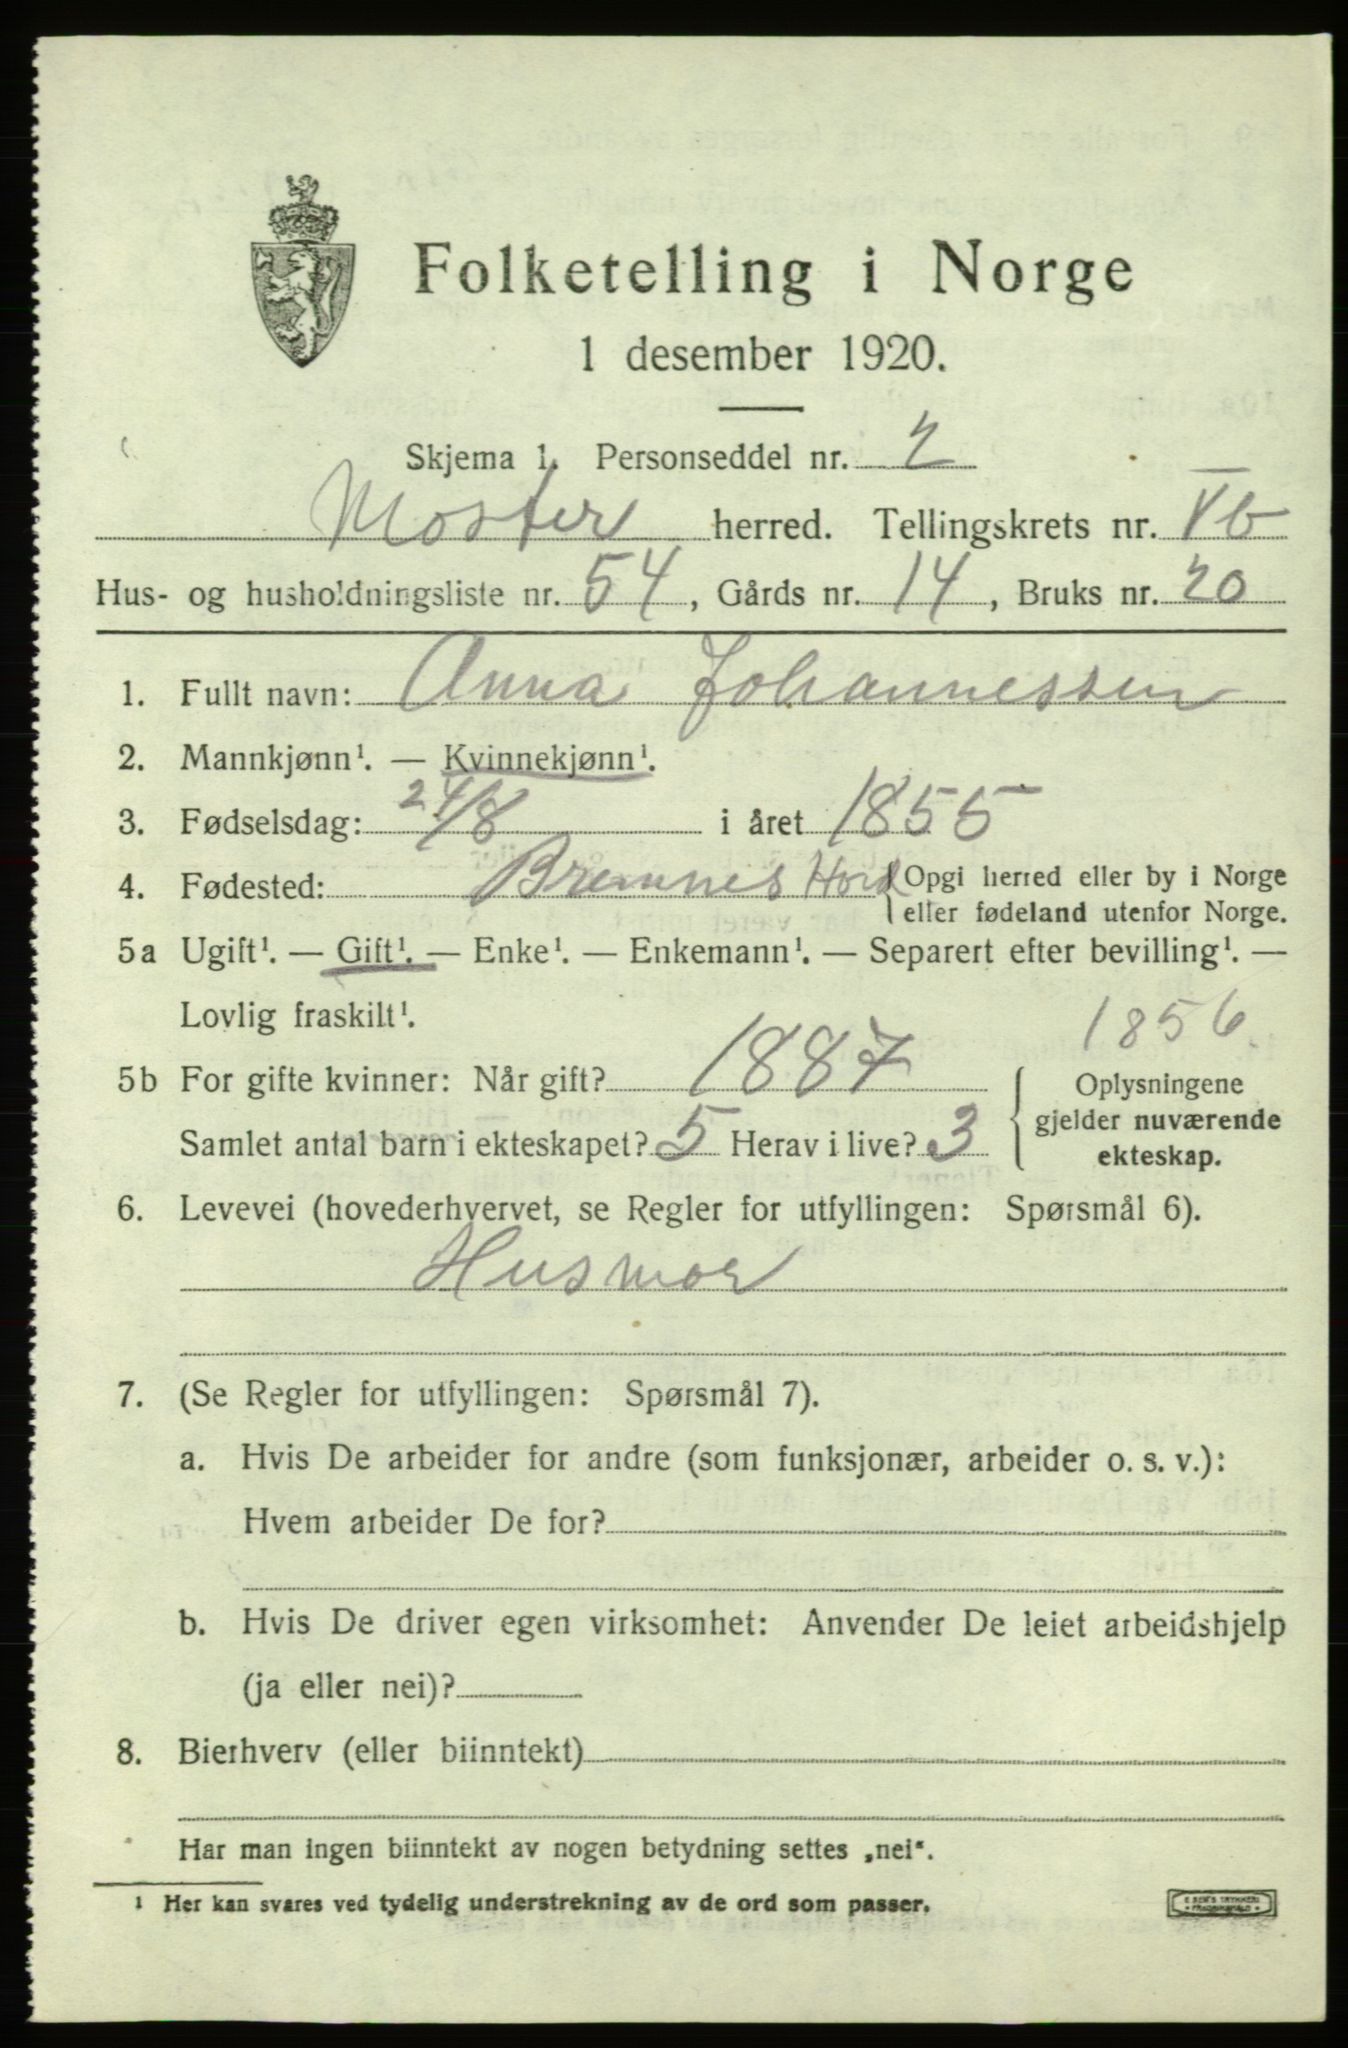 Folketelling i Norge
1 desember 1920.
Skjema 1. Personseddel nr. 2
Moster herred. Tellingskrets nr. Vb
Hus- og husholdningsliste nr. 54, Gårds nr. 14, Bruks nr. 20
1. Fullt navn: Anna Johannessen
2. Mannkjønn¹. — Kvinnekjønn¹.
3. Fødselsdag: 24/8 i året 1855
4. Fødested: Bremnes Hord {Opgi herred eller by i Norge
eller fødeland utenfor Norge.
5a Ugift¹. — Gift¹. — Enke¹. — Enkemann¹. — Separert efter bevilling¹. —
Lovlig fraskilt¹.
1856.
5b For gifte kvinner: Når gift? 1887 Oplysningene
gjelder nuværende
Samlet antal barn i ekteskapet? 5 Herav i live? 3 ekteskap.
6. Levevei (hovederhvervet, se Regler for utfyllingen: Spørsmål 6).
Husmor
7. (Se Regler for utfyllingen: Spørsmål 7).
a. Hvis De arbeider for andre (som funksjonær, arbeider o. s. v.):
Hvem arbeider De for?
b. Hvis De driver egen virksomhet: Anvender De leiet arbeidshjelp
(ja eller nei)?
8. Bierhverv (eller biinntekt)
Har man ingen biinntekt av nogen betydning settes „nei“.
¹ Her kan svares ved tydelig understrekning av de ord som passer.